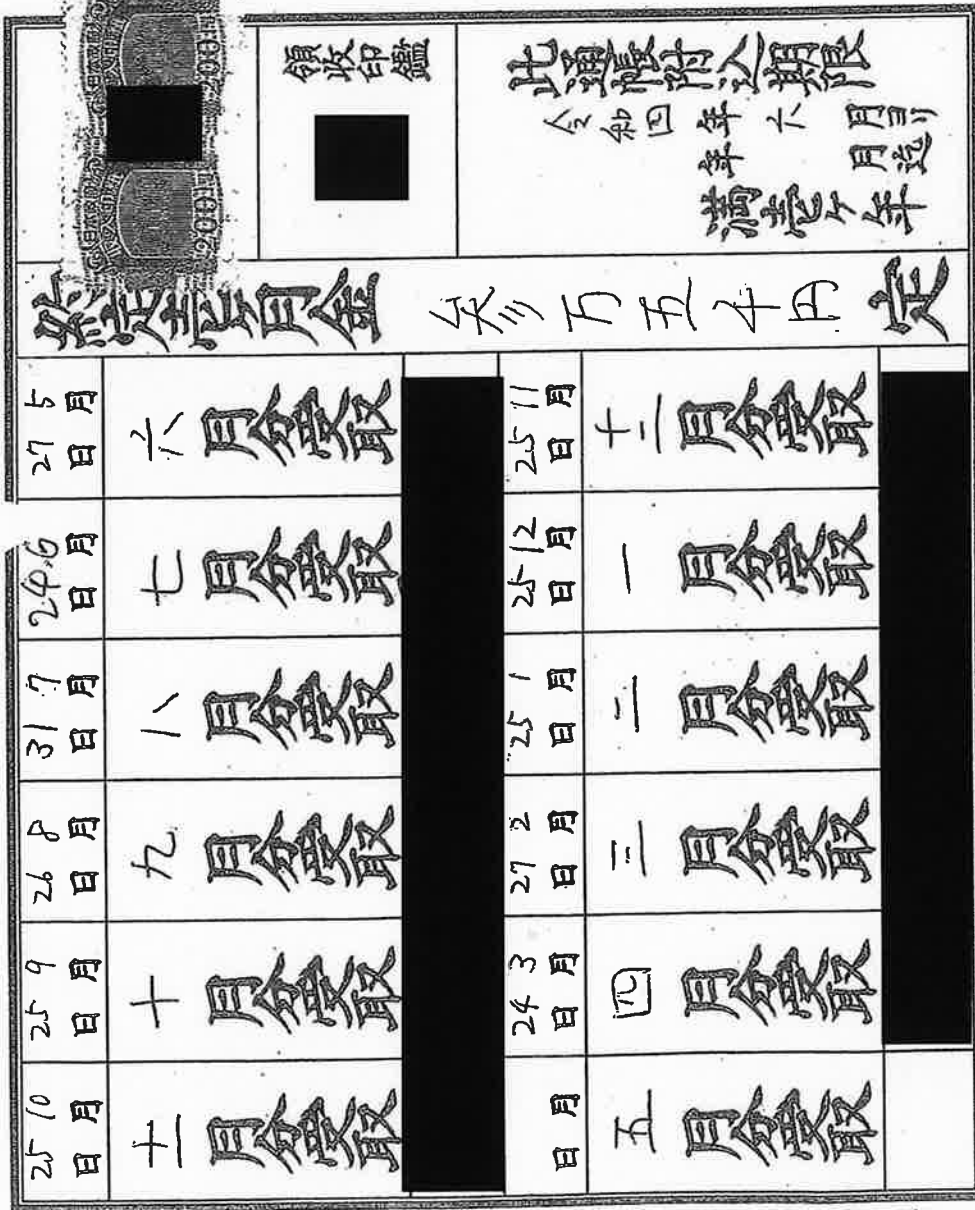 此通帳附込期限
令和四年六月ヨリ
年 月迄
満壱ケ年
領収印鑑
200円
200円
参万五千円 定
5月27日 六月分受取
6月24日 七月分受取
7月31日 八月分受取
8月26日 九月分受取
9月25日 十月分受取
10月25日 十一月分受取
11月25日 十二月分受取
12月25日 一月分受取
1月25日 二月分受取
2月27日 三月分受取
3月24日 四月分受取
月 日 五月分受取